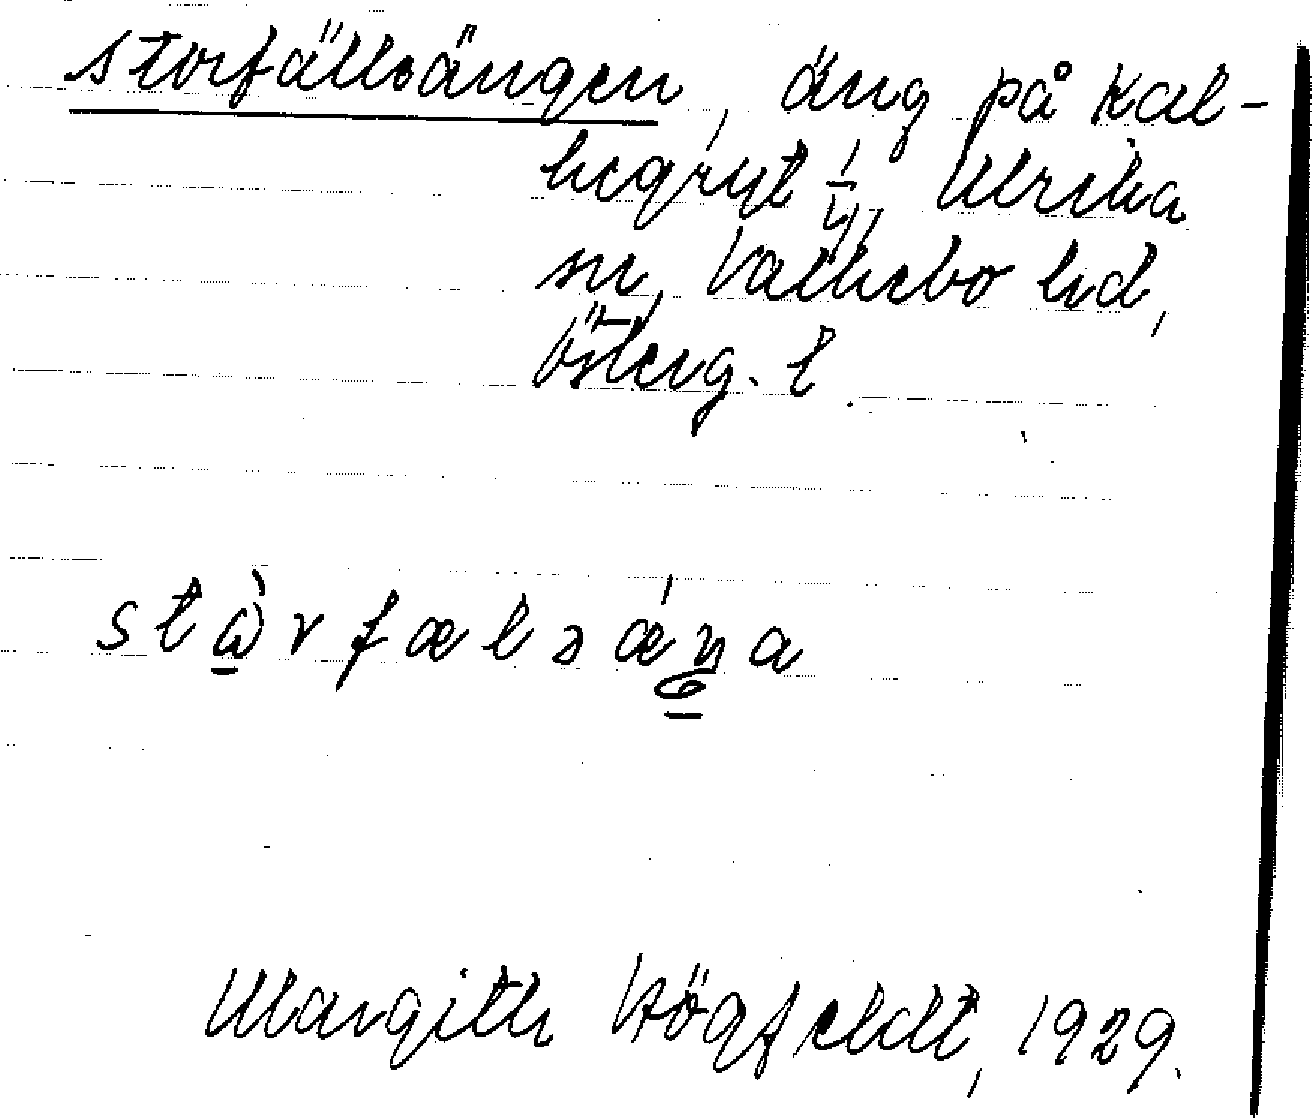 Storfällsängen, äng på Kal-
hegryt 1/4, Ulrika
sn, Valkebo hd,
Österg. l.
stωrfælsæŋa
Margith Högfeldt, 1929.